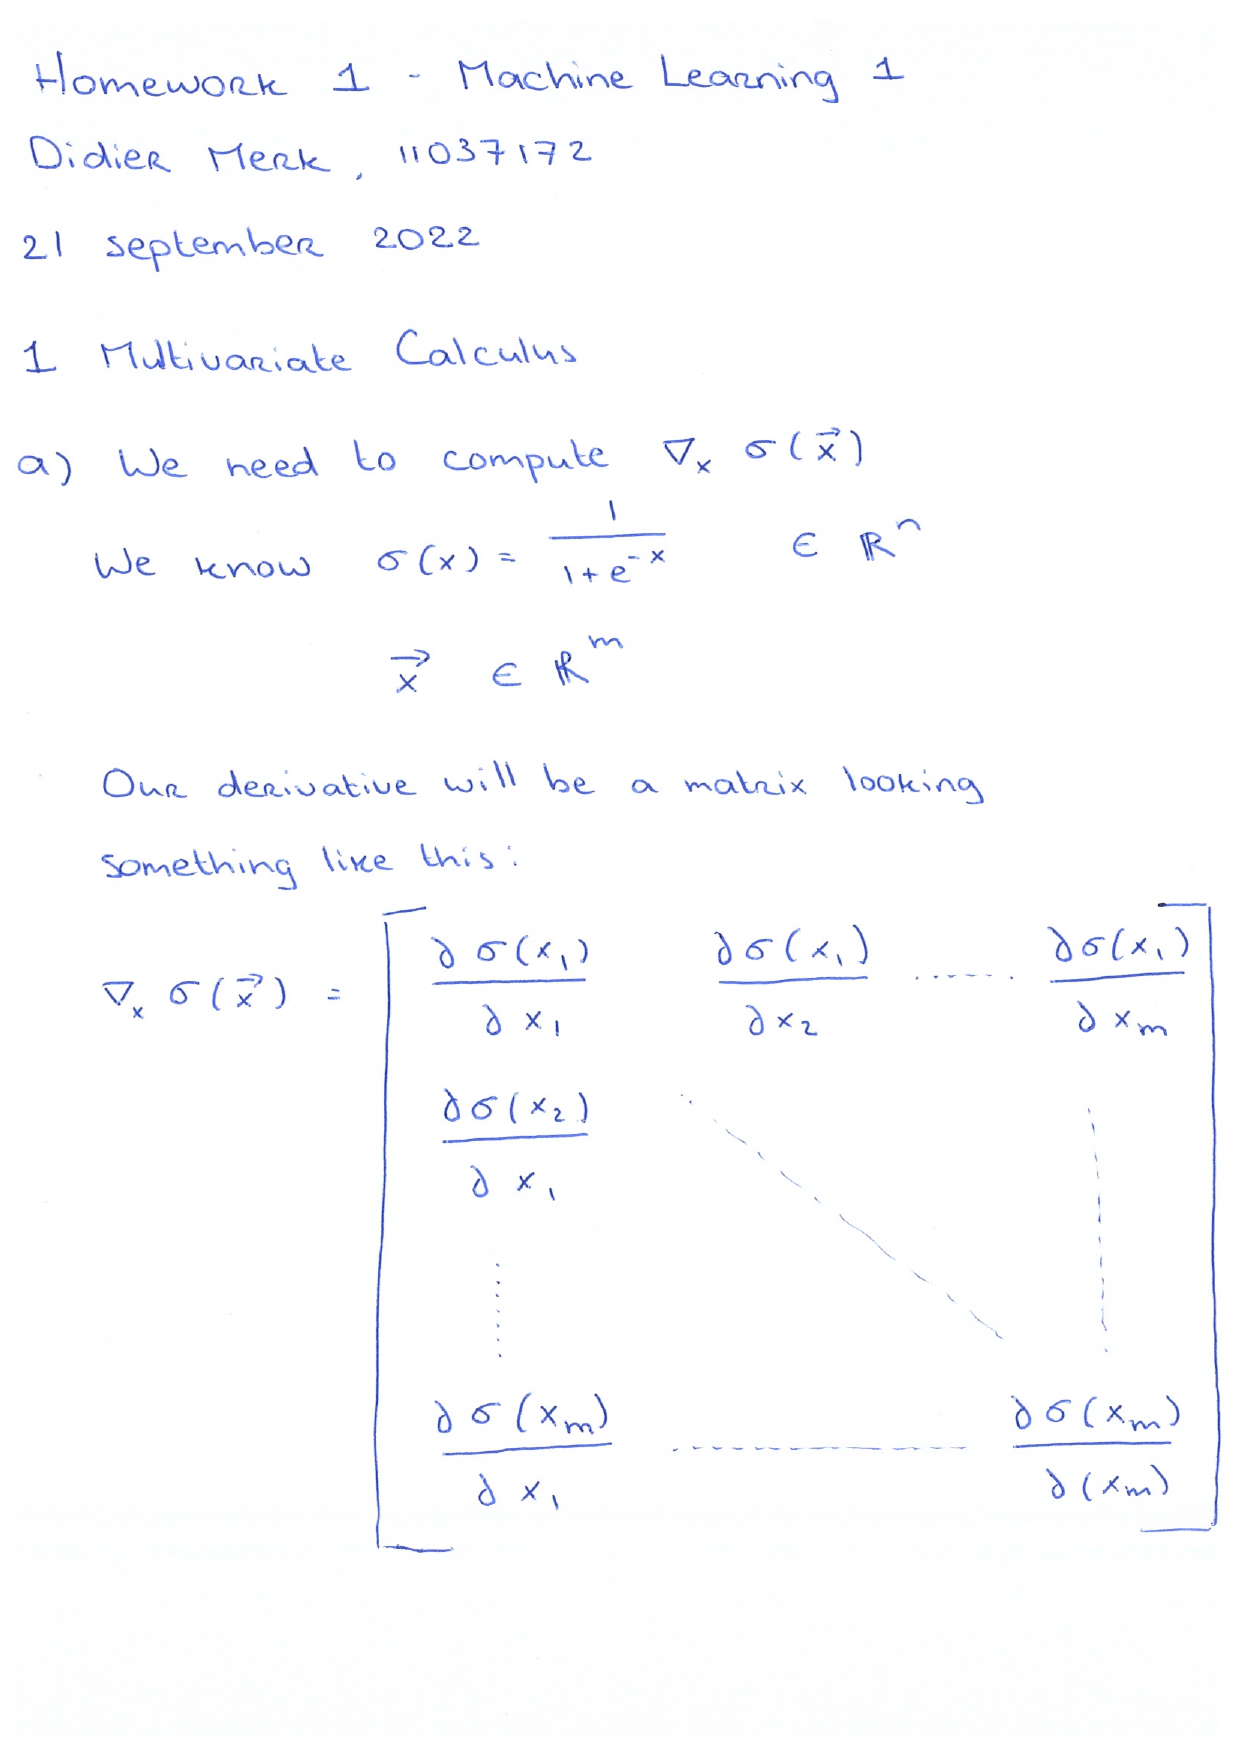 Homework 1 - Machine Learning 1
Didier Merk, 11037172
21 september 2022
1 Multivariate Calculus
a) We need to compute ∇ₓ σ(x⃗)
We know σ(x) = 1 / (1 + e^(-x)) ∈ ℝⁿ
x⃗ ∈ ℝᵐ
Our derivative will be a matrix looking
something like this:
∇ₓ σ(x⃗) = [ ∂σ(x₁)/∂x₁ ∂σ(x₁)/∂x₂ ...... ∂σ(x₁)/∂xₘ
∂σ(x₂)/∂x₁
∂σ(xₘ)/∂x₁ ------ ∂σ(xₘ)/∂(xₘ) ]